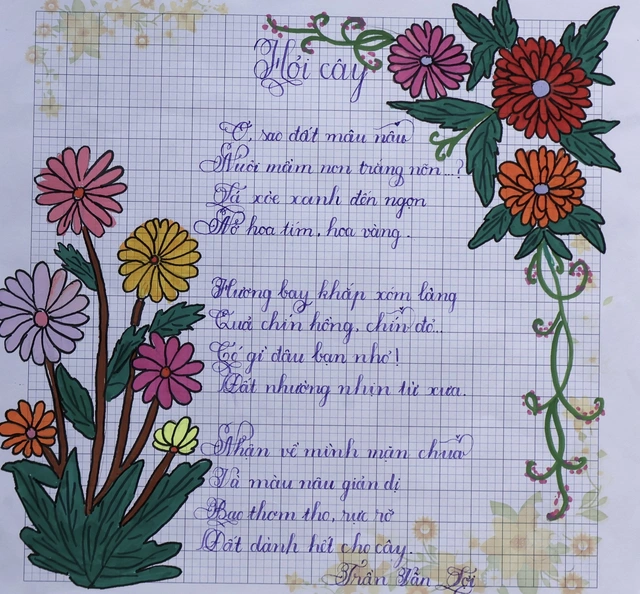 Hỏi cây
Ơ, sao đất màu nâu
Nuôi mầm non trắng nõn...?
Lá xòe xanh đến ngọn
Nở hoa tím, hoa vàng.
Hương bay khắp xóm làng
Quả chín hồng, chín đỏ...
Có gì đâu bạn nhỏ!
Đất nhường nhịn từ xưa.
Nhận về mình mặn chua
Và màu nâu giản dị
Bao thơm tho, rực rỡ
Đất dành hết cho cây.
Trần Văn Lợi